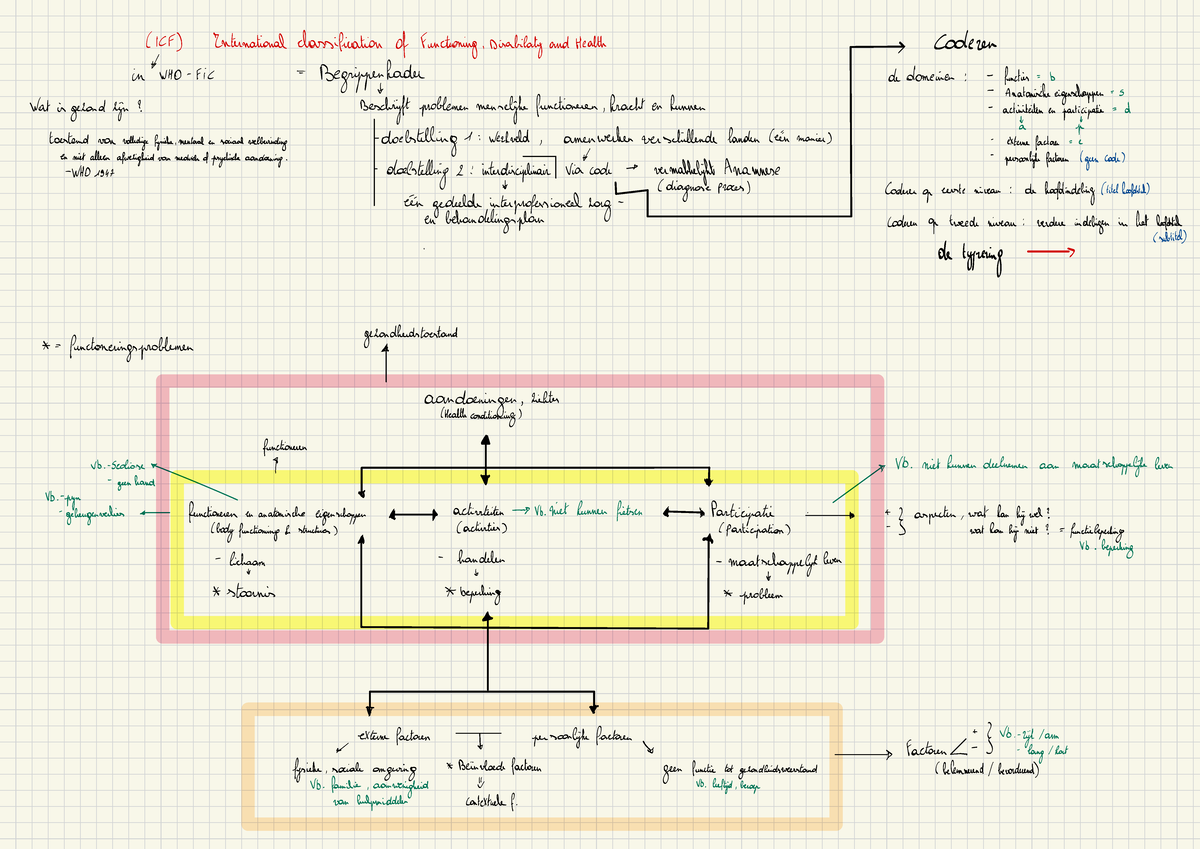 (ICF) International classification of Functioning, Disability and Health
in WHO-FIC
= Begrippenkader
Wat is gezond zijn?
toestand van volledige fysieke, mentaal en sociaal welbevinding
en niet alleen afwezigheid van medische of psychische aandoening.
-WHO 1947
Beschrijft problemen menselijke functioneren, kracht en kunnen
- doelstelling 1: wereldwijd, samenwerken verschillende landen (één manier)
- doelstelling 2: interdisciplinair via code → vermakkelijkt Anamnese
(diagnose proces)
één gedeelde interprofessioneel zorg-
en behandelingsplan
Coderen
de domeinen:
- functies = b
- Anatomische eigenschappen = s
- activiteiten en participatie = d
a p
- externe factoren = e
- persoonlijke factoren (geen code)
Coderen op eerste niveau: de hoofdindeling (titel hoofdstuk)
Coderen op tweede niveau: verdere indelingen in het hoofdstuk
(subtitel)
de typering →
* = functioneringsproblemen
gezondheidstoestand
aandoeningen, ziektes
(Health conditioning)
functioneren
Vb. -Scoliose
- geen hand
Vb. -pijn
- geheugenverlies
functioneren en anatomische eigenschappen
(body functioning & structures)
- lichaam
* stoornis
activiteiten → Vb. Niet kunnen fietsen
(activities)
- handelen
* beperking
Participatie
(participation)
- maatschappelijk leven
* probleem
Vb. niet kunnen deelnemen aan maatschappelijke leven
+ } aspecten, wat kan hij wel?
- } wat kan hij niet? = functiebeperking
Vb. beperking
externe factoren
persoonlijke factoren
fysieke, sociale omgeving
Vb. familie, aanwezigheid
van hulpmiddelen
* Beïnvloeds factoren
Contextuele f.
geen functie tot gezondheidstoestand
Vb. leeftijd, beroep
Factoren + - } Vb. -rijk / arm
- lang / kort
(belemmerend / bevorderend)